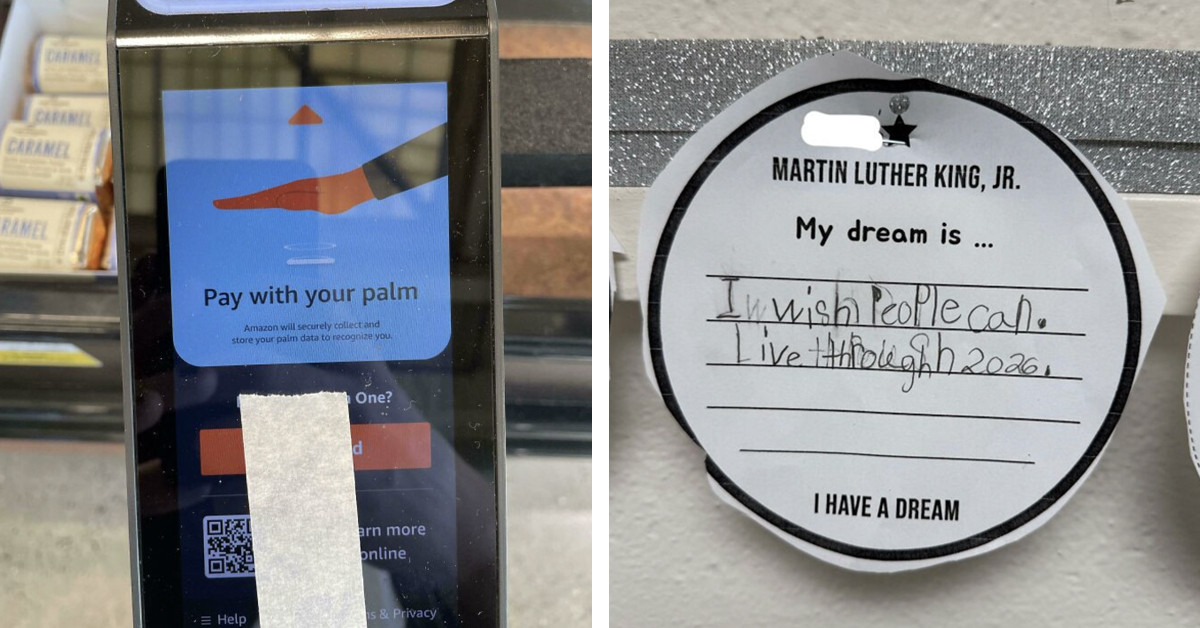 CARAMEL
CARAMEL
CARAMEL
RAMEL
Pay with your palm
Amazon will securely collect and
store your palm data to recognize you.
One?
d
arn more
online
Help
s & Privacy
MARTIN LUTHER KING, JR.
My dream is ...
I wish PeoPle can.
Live through 2026.
I HAVE A DREAM